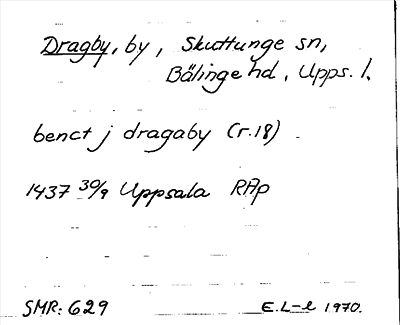 Dragby, by, Skuttunge sn,
Bälinge hd, Upps. l.
benct j dragaby (r.18)
1437 30/9 Uppsala RAp
SMR: 629 E.L-l 1970.